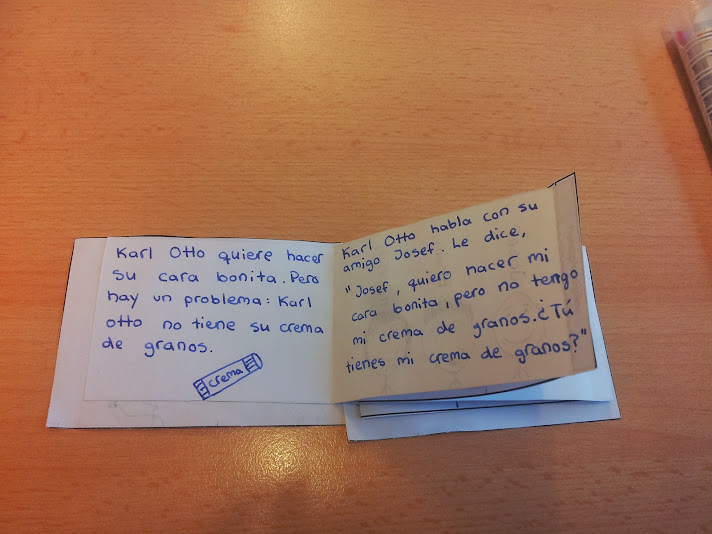 Karl Otto quiere hacer
su cara bonita. Pero
hay un problema: Karl
otto no tiene su crema
de granos.
crema
Karl Otto habla con su
amigo Josef. Le dice,
"Josef, quiero hacer mi
cara bonita, pero no tengo
mi crema de granos. ¿Tú
tienes mi crema de granos?"